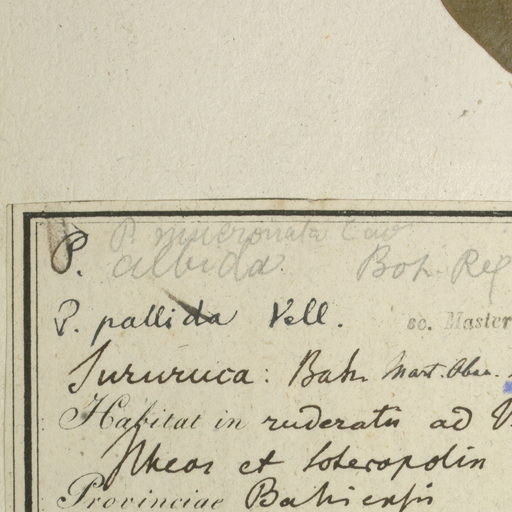 P. mucronata Cav
P. albida. Boh. Reg
P. pallida Vell. sc. Master
Sururuca: Bah. Mart. Obse.
Habitat in ruderatis ad V
Ilheos et Soteropolin
Provinciae Bahiensis